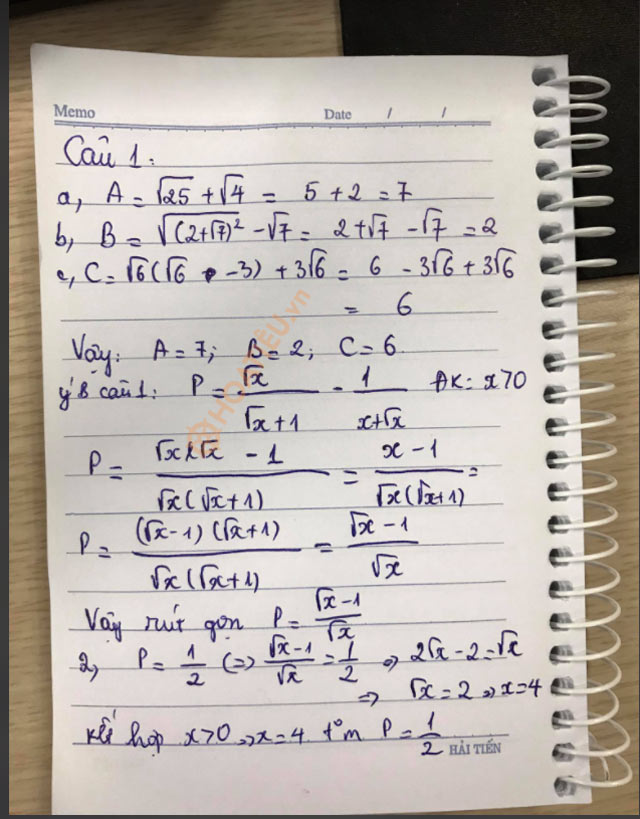 Memo Date / /
Câu 1:
a, A = √25 + √4 = 5 + 2 = 7
b, B = √(2+√7)² - √7 = 2+√7 - √7 = 2
c, C = √6(√6 - 3) + 3√6 = 6 - 3√6 + 3√6
= 6
Vậy: A = 7; B = 2; C = 6
ý B câu 1: P = √x / (√x + 1) - 1 / (x+√x) ĐK: x>0
P = (√x·√x - 1) / (√x(√x+1)) = (x - 1) / (√x(√x+1)) =
P = (√x-1)(√x+1) / (√x(√x+1)) = (√x - 1) / √x
Vậy rút gọn P = (√x-1) / √x
2, P = 1/2 (=> (√x-1)/√x = 1/2 => 2√x - 2 = √x
=> √x = 2 => x=4
kết hợp x>0 => x=4 t°m P = 1/2
HẢI TIẾN
HOATIEU.vn